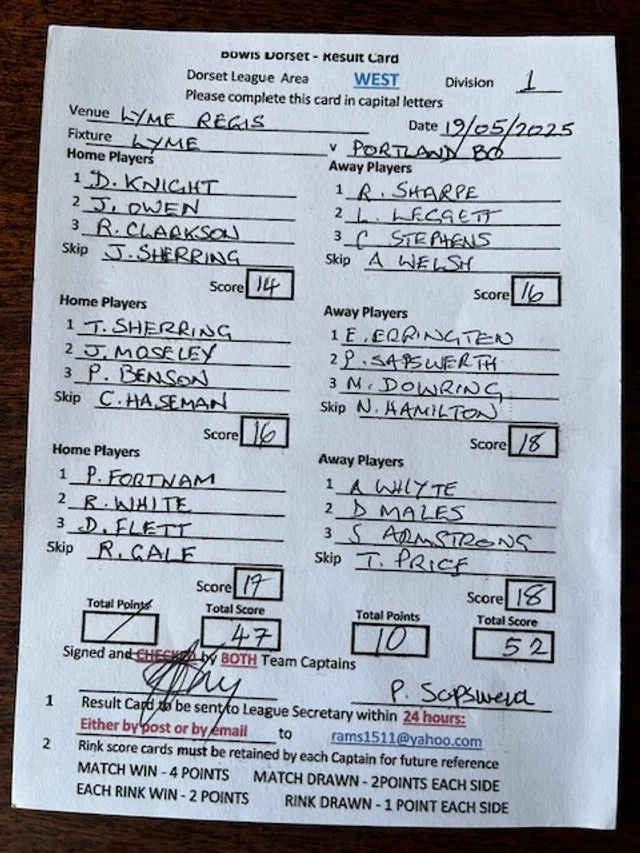 Bowls Dorset - Result Card
Dorset League Area WEST Division 1
Please complete this card in capital letters
Venue LYME REGIS Date 19/05/2025
Fixture LYME v PORTLAND BO
Home Players Away Players
1 D. KNIGHT 1 R. SHARPE
2 J. OWEN 2 L. LEGGETT
3 R. CLARKSON 3 C STEPHENS
Skip J. SHERRING Skip A WELSH
Score 14 Score 16
Home Players Away Players
1 T. SHERRING 1 E. ERRINGTEN
2 J. MOSELEY 2 P. SAPSWERTH
3 P. BENSON 3 M. DOWRING
Skip C. HASEMAN Skip N. HAMILTON
Score 16 Score 18
Home Players Away Players
1 P. FORTNAM 1 A WHYTE
2 R. WHITE 2 D MALES
3 D. FLETT 3 S ARMSTRONG
Skip R. GALE Skip T. PRICE
Score 17 Score 18
Total Points Total Score Total Points Total Score
/ 47 10 52
Signed and CHECKED by BOTH Team Captains
P. Sapswerd
1 Result Card to be sent to League Secretary within 24 hours:
Either by post or by email to rams1511@yahoo.com
2 Rink score cards must be retained by each Captain for future reference
MATCH WIN - 4 POINTS MATCH DRAWN - 2POINTS EACH SIDE
EACH RINK WIN - 2 POINTS RINK DRAWN - 1 POINT EACH SIDE